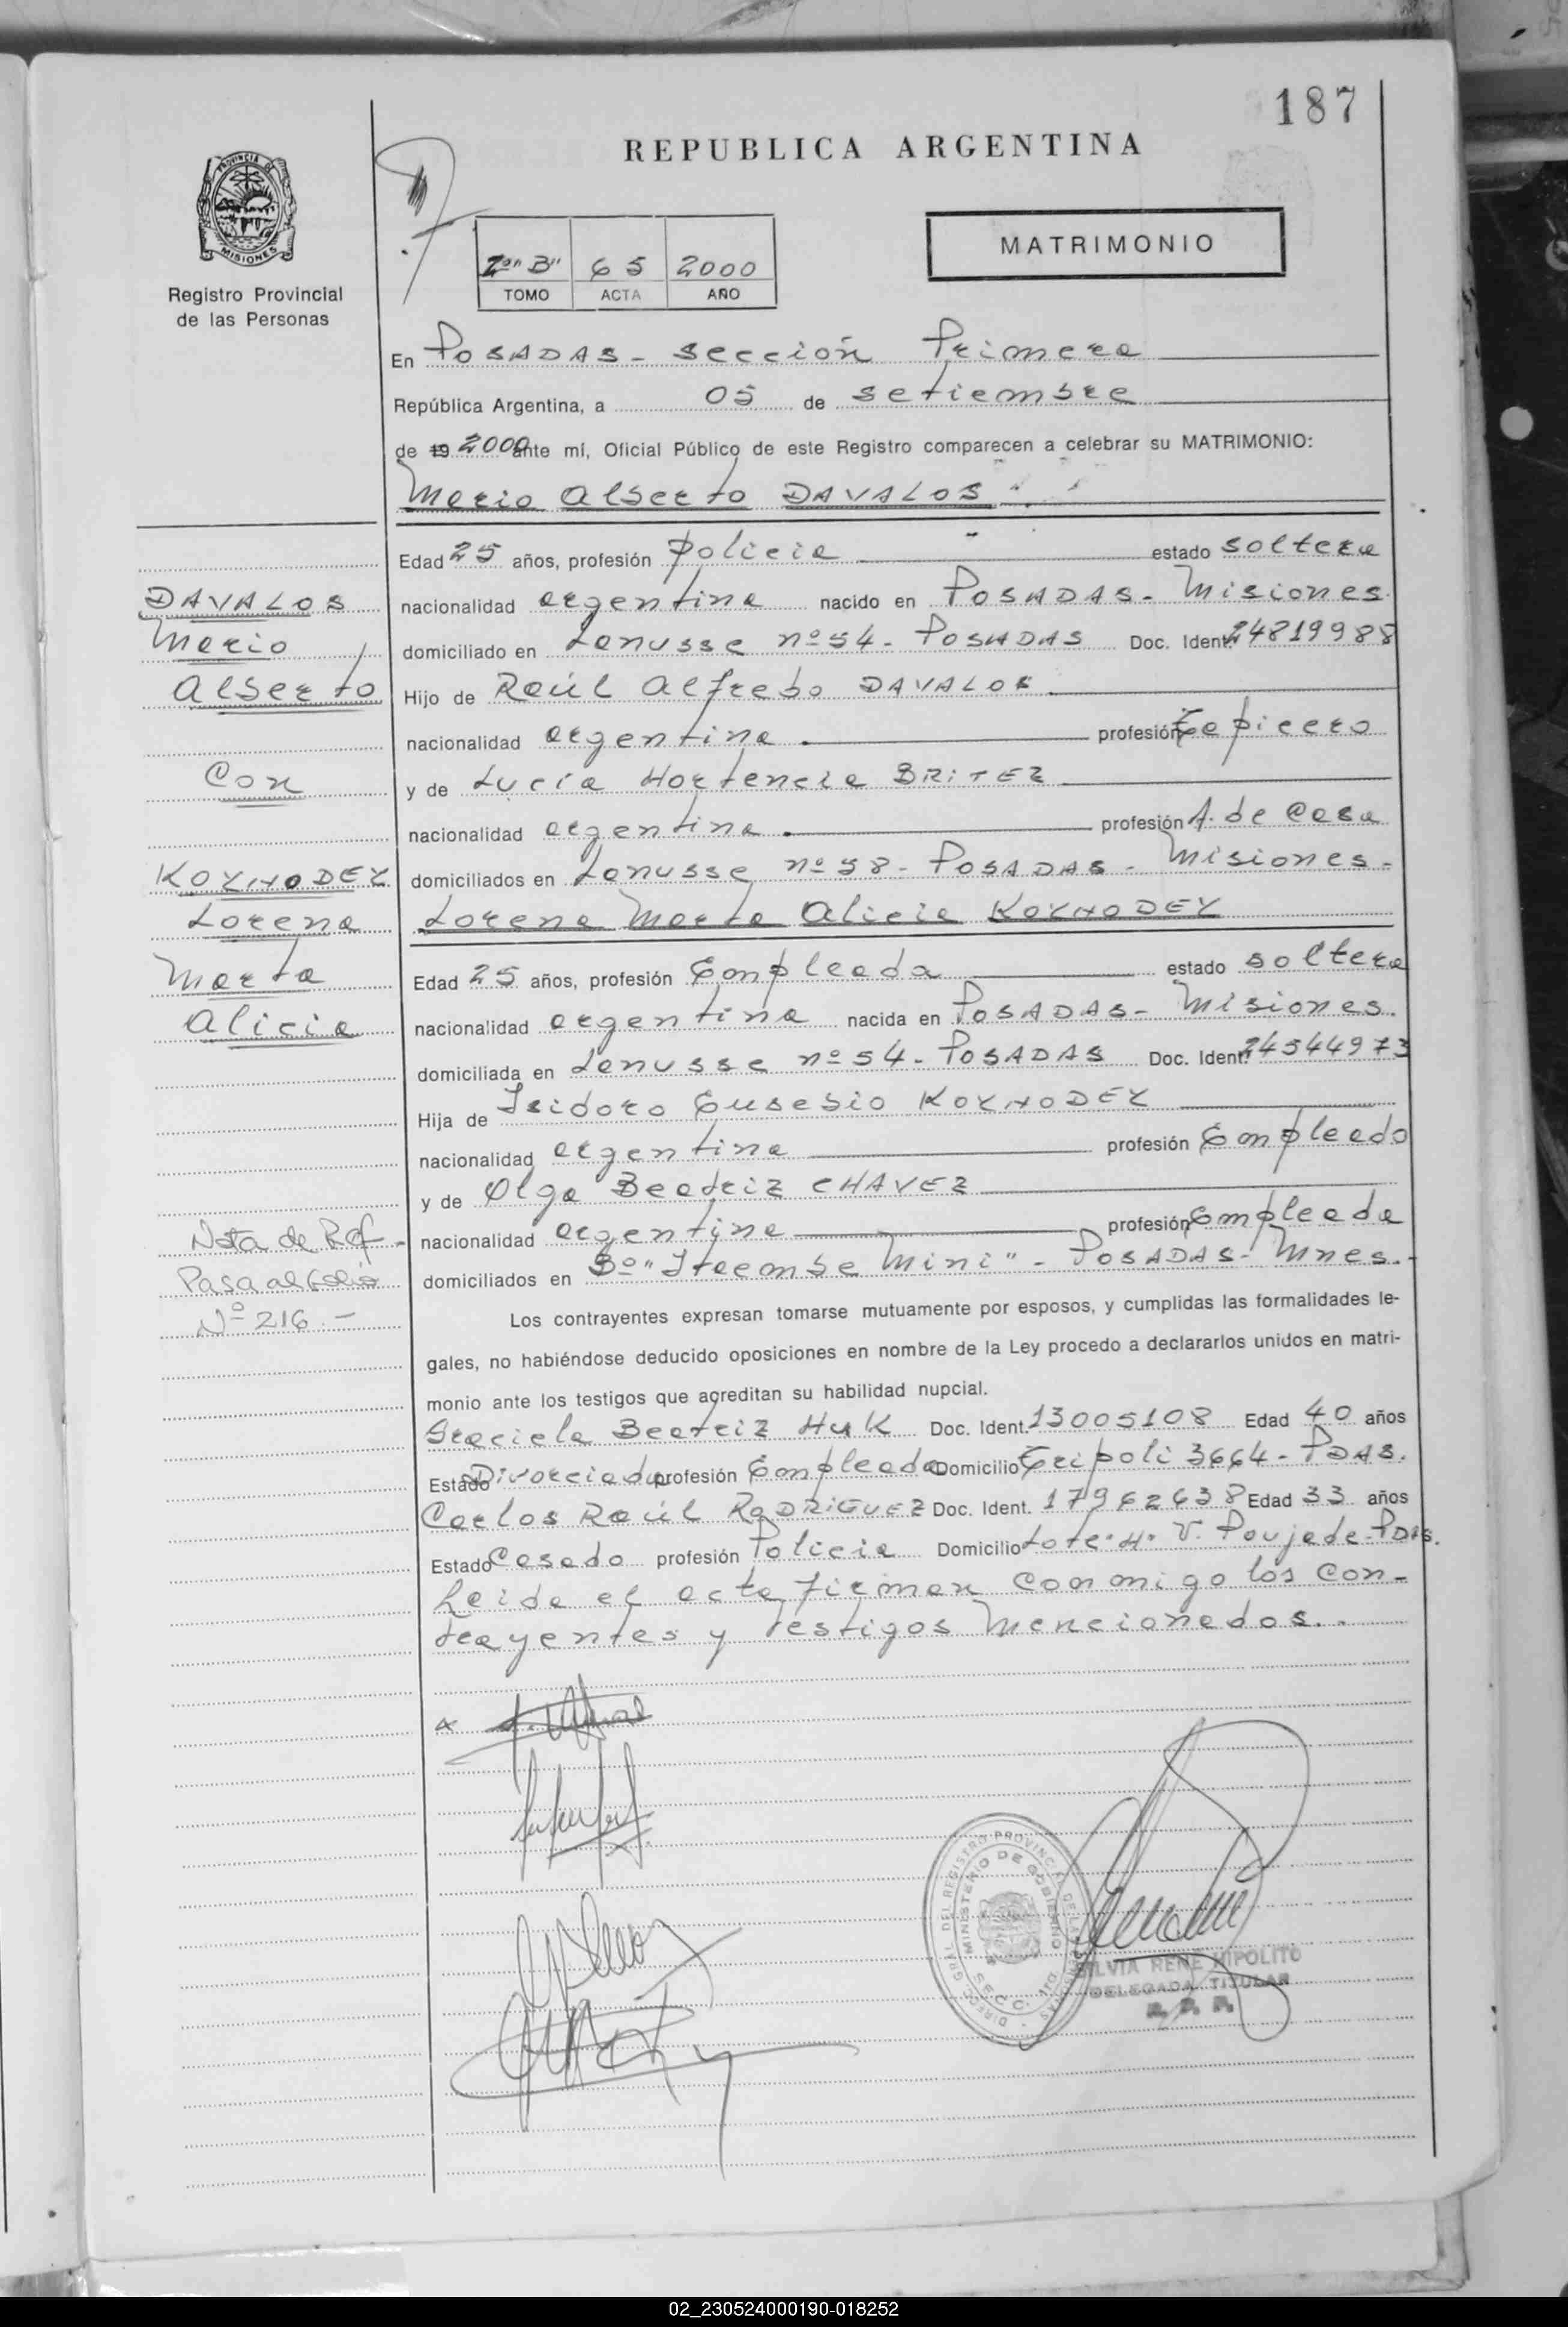 187
REPUBLICA ARGENTINA
PROVINCIA DE
MISIONES
Registro Provincial
de las Personas
MATRIMONIO
2º "B" 65 2000
TOMO ACTA AÑO
En POSADAS - sección Primera
República Argentina, a 05 de setiembre
de 19 2000 ante mí, Oficial Público de este Registro comparecen a celebrar su MATRIMONIO:
Mario Alberto DAVALOS
Edad 25 años, profesión Policia estado soltero
DAVALOS
nacionalidad argentina nacido en POSADAS - Misiones
Mario
domiciliado en Lanusse nº 54 - POSADAS Doc. Ident. 24819988
Alberto
Hijo de Raúl Alfredo DAVALOS
nacionalidad argentina profesión Tapicero
Con
y de Lucía Hortencia BRITEZ
nacionalidad argentina profesión A. de Casa
KOYHODEY
domiciliados en Lanusse nº 58 - POSADAS - Misiones -
Lorena
Lorena Marta Alicia KOYHODEY
Marta
Edad 25 años, profesión Empleada estado soltera
Alicia
nacionalidad argentina nacida en POSADAS - Misiones.
domiciliada en Lanusse nº 54 - POSADAS Doc. Ident. 24544973
Hija de Isidoro Eusebio KOYHODEY
nacionalidad argentina profesión Empleado
y de Olga Beatriz CHAVEZ
Nota de Ref -
nacionalidad argentina profesión Empleada
Pasa al Folio
domiciliados en Bº "Itaembe Mini" - POSADAS - Mnes. -
Nº 216. -
Los contrayentes expresan tomarse mutuamente por esposos, y cumplidas las formalidades le-
gales, no habiéndose deducido oposiciones en nombre de la Ley procedo a declararlos unidos en matri-
monio ante los testigos que acreditan su habilidad nupcial.
Graciela Beatriz HUK Doc. Ident. 13005108 Edad 40 años
Estado Divorciada profesión Empleada Domicilio Tripoli 3664 - PDAS.
Carlos Raúl RODRIGUEZ Doc. Ident. 17962638 Edad 33 años
Estado Casado profesión Policia Domicilio Lote. H. V. Poujade - PDAS.
Leida el acta firman conmigo los con-
trayentes y testigos mencionados.
DIRECC. GRAL. DEL REGISTRO PROVINCIAL DE LAS PERSONAS
MINISTERIO DE GOBIERNO
SECC. 1ra.
SILVIA RENE HIPOLITO
DELEGADA TITULAR
R. P. P.
02_230524000190-018252